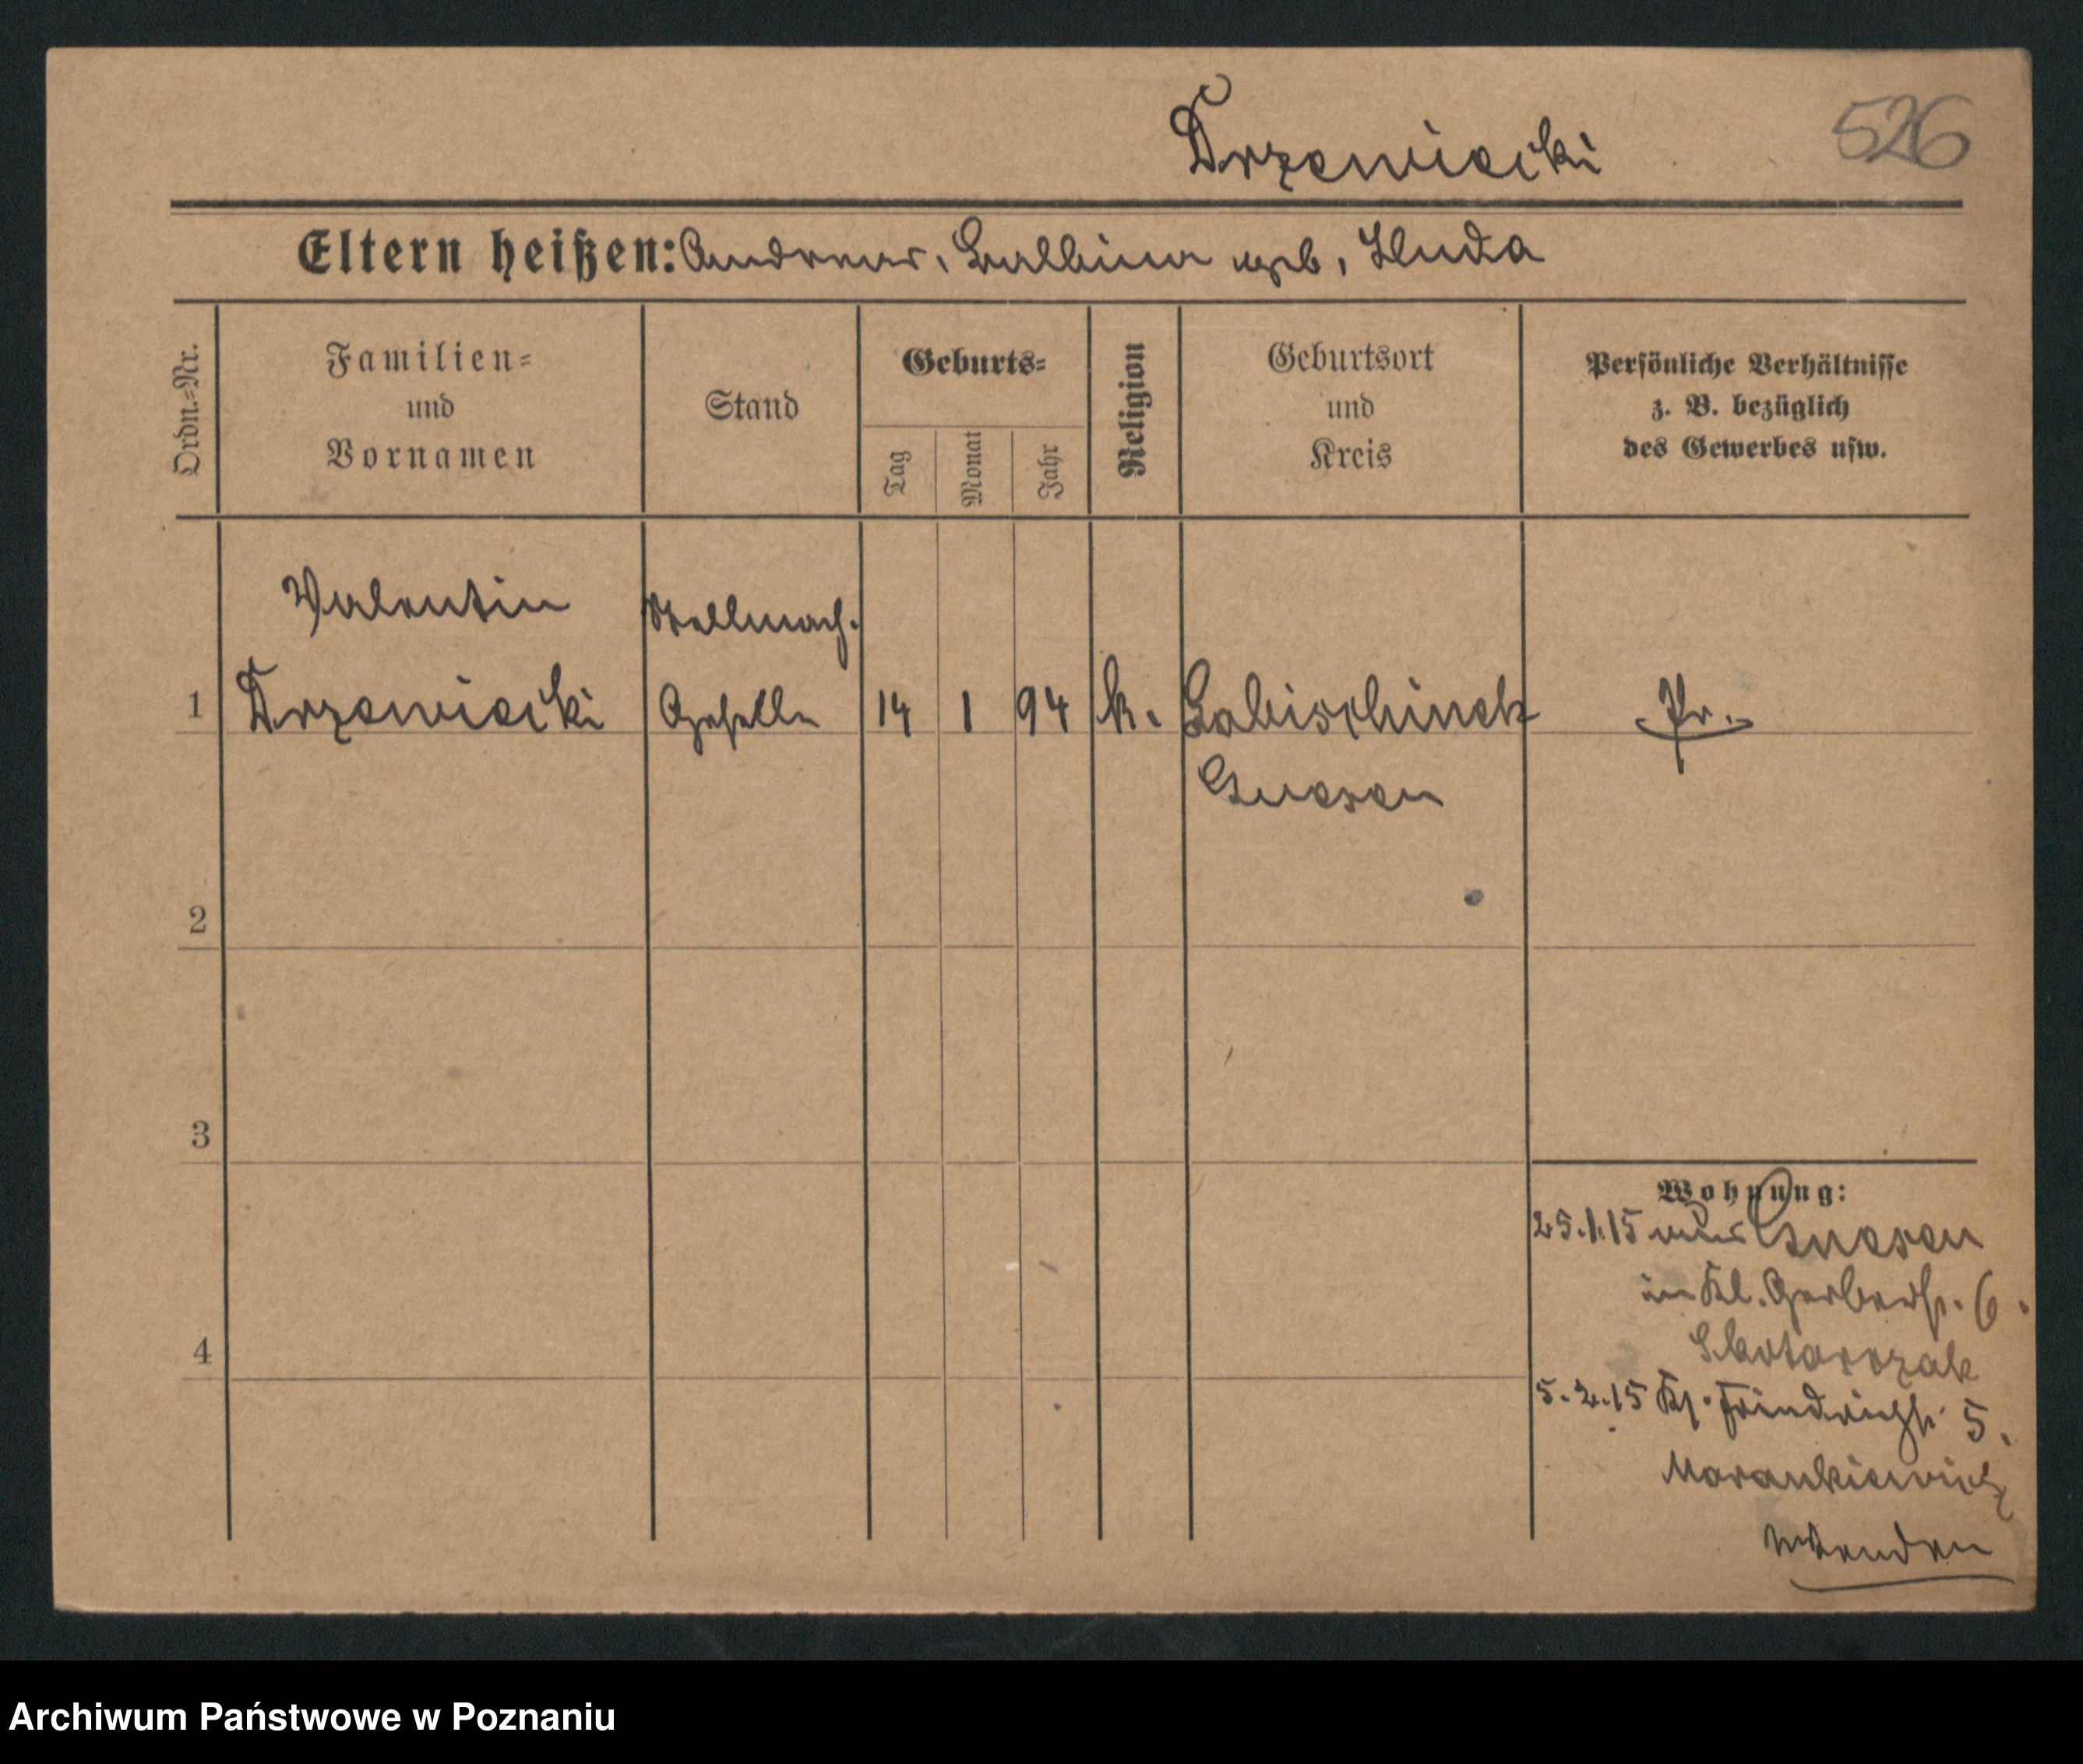 Drzewiecki
526
Eltern heißen: Andreas, Balbina geb. Huda
Ordn.-Nr.
Familien-
und
Vornamen
Stand
Geburts-
Tag
Monat
Jahr
Religion
Geburtsort
und
Kreis
Persönliche Verhältnisse
z. B. bezüglich
des Gewerbes usw.
Valentin
Stellmach.
1 Drzewiecki Geselle 14 1 94 k. Labischinek Pr.
Gnesen
2
3
4
Wohnung:
25.1.15 aus Gnesen
in Kl. Gerberstr. 6.
Skotarczak
5.2.15 Ks. Friedrichstr. 5.
Marankiewicz
Wenden
Archiwum Państwowe w Poznaniu